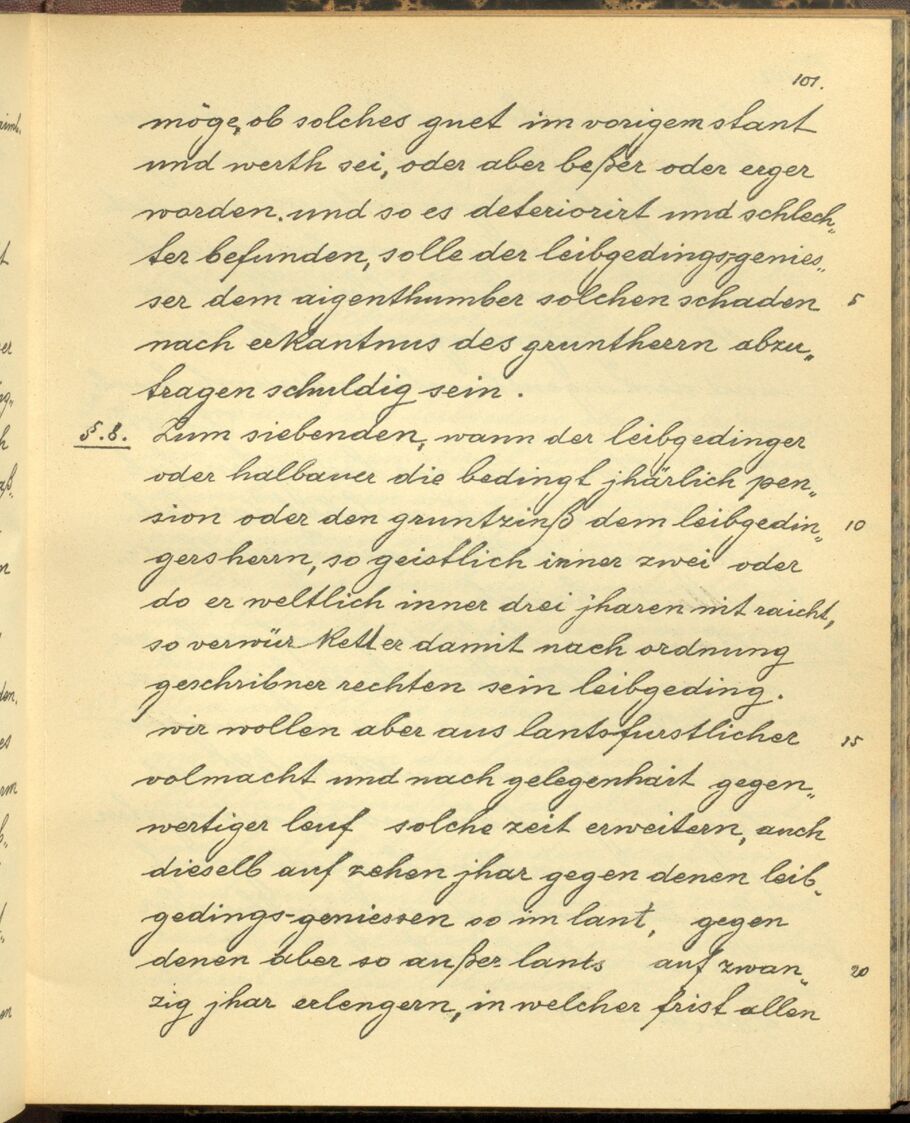 101.
möge, ob solches guet im vorigem stant
und werth sei, oder aber beßer oder erger
worden. und so es deteriorirt und schlech„
ter befunden, solle der leibgedings-genies„
ser dem aigenthumber solchen schaden 5
nach erkantnus des gruntherrn abzu„
tragen schuldig sein.
§.8. Zum siebenden, wann der leibgedinger
oder halbauer die bedingt jhärlich pen„
sion oder den gruntzinß dem leibgedin„ 10
gersherrn, so geistlich inner zwei oder
do er weltlich inner drei jharen nit raicht,
so verwürkett er damit nach ordnung
geschribner rechten sein leibgeding.
wir wollen aber aus lantsfurstlicher 15
volmacht und nach gelegenhait gegen„
wertiger leuf solche zeit erweitern, auch
dieselb auf zehen jhar gegen denen leib„
gedings-geniessen so im lant, gegen
denen aber so außer lants auf zwan„ 20
zig jhar erlengern, in welcher frist allen